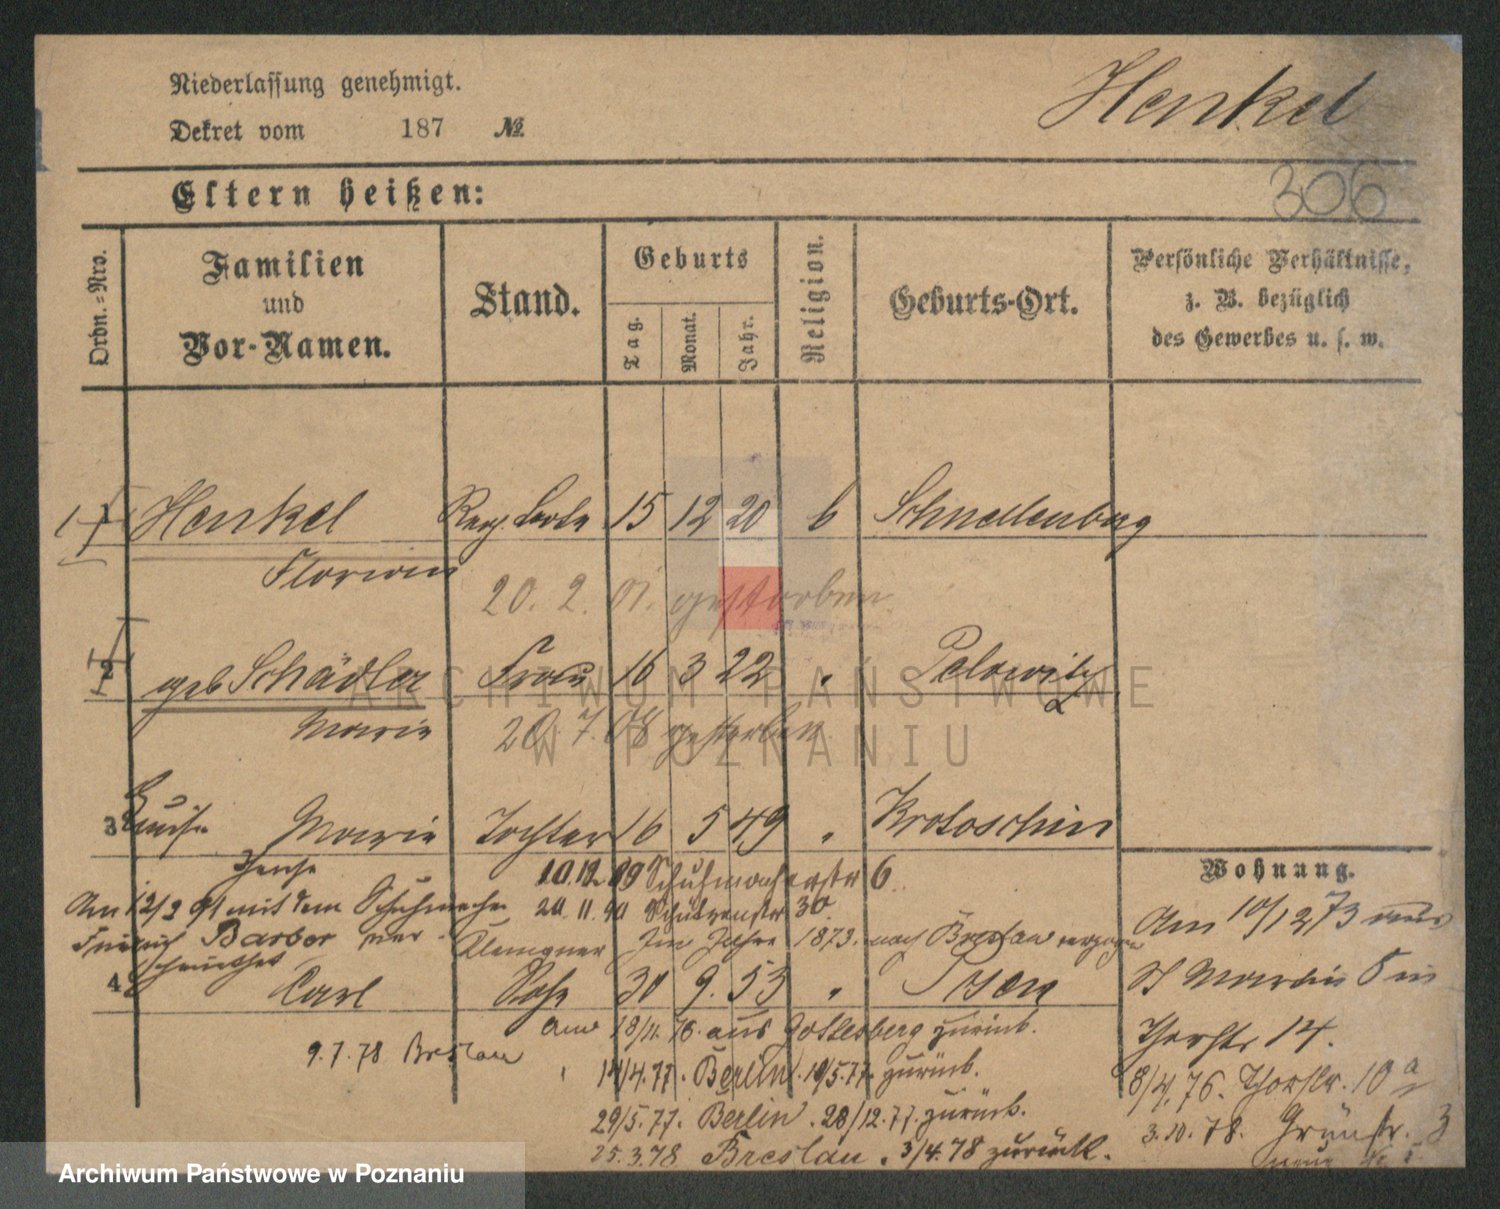 Niederlassung genehmigt.
Henkel
Dekret vom 187 №
306
Eltern heißen:
Ordn.-Nro.
Familien und Vor-Namen.
Stand.
Geburts
Tag.
Monat.
Jahr.
Religion.
Geburts-Ort.
Persönliche Verhältnisse, z. B. bezüglich des Gewerbes u. s. w.
1 Henkel 15 12 20 Schnellenburg
Florian
20. 2. 01. gestorben
2 geb Schädler Frau 16 3 22 "
Marie
20. 7. 08 gestorben
3 Marie Tochter 16 5 49 " Krotoschin
Wohnung.
10.12.89 Schuhmacherstr 6
Am 12/2 91 mit dem Schuhmacher 20.11.90 Schützenstr 30.
Friedrich Barber Im Jahre 1873. nach Breslau verzogen
Am 10/12 73
4 Carl Sohn 30 9. 53 "
St Martin
am 18/11. 76. aus Gottesberg zurück.
Thorstr 14.
9.7.78 Breslau
14/4.77. Berlin. 19/5.77. zurück.
8/4.76. Thorstr. 10a
29/5.77. Berlin. 28/12.77. zurück.
3.10.78. Grünstr. 3
25.3.78 Breslau. 3/4.78 zurück.
ARCHIWUM PAŃSTWOWE
W POZNANIU
Archiwum Państwowe w Poznaniu